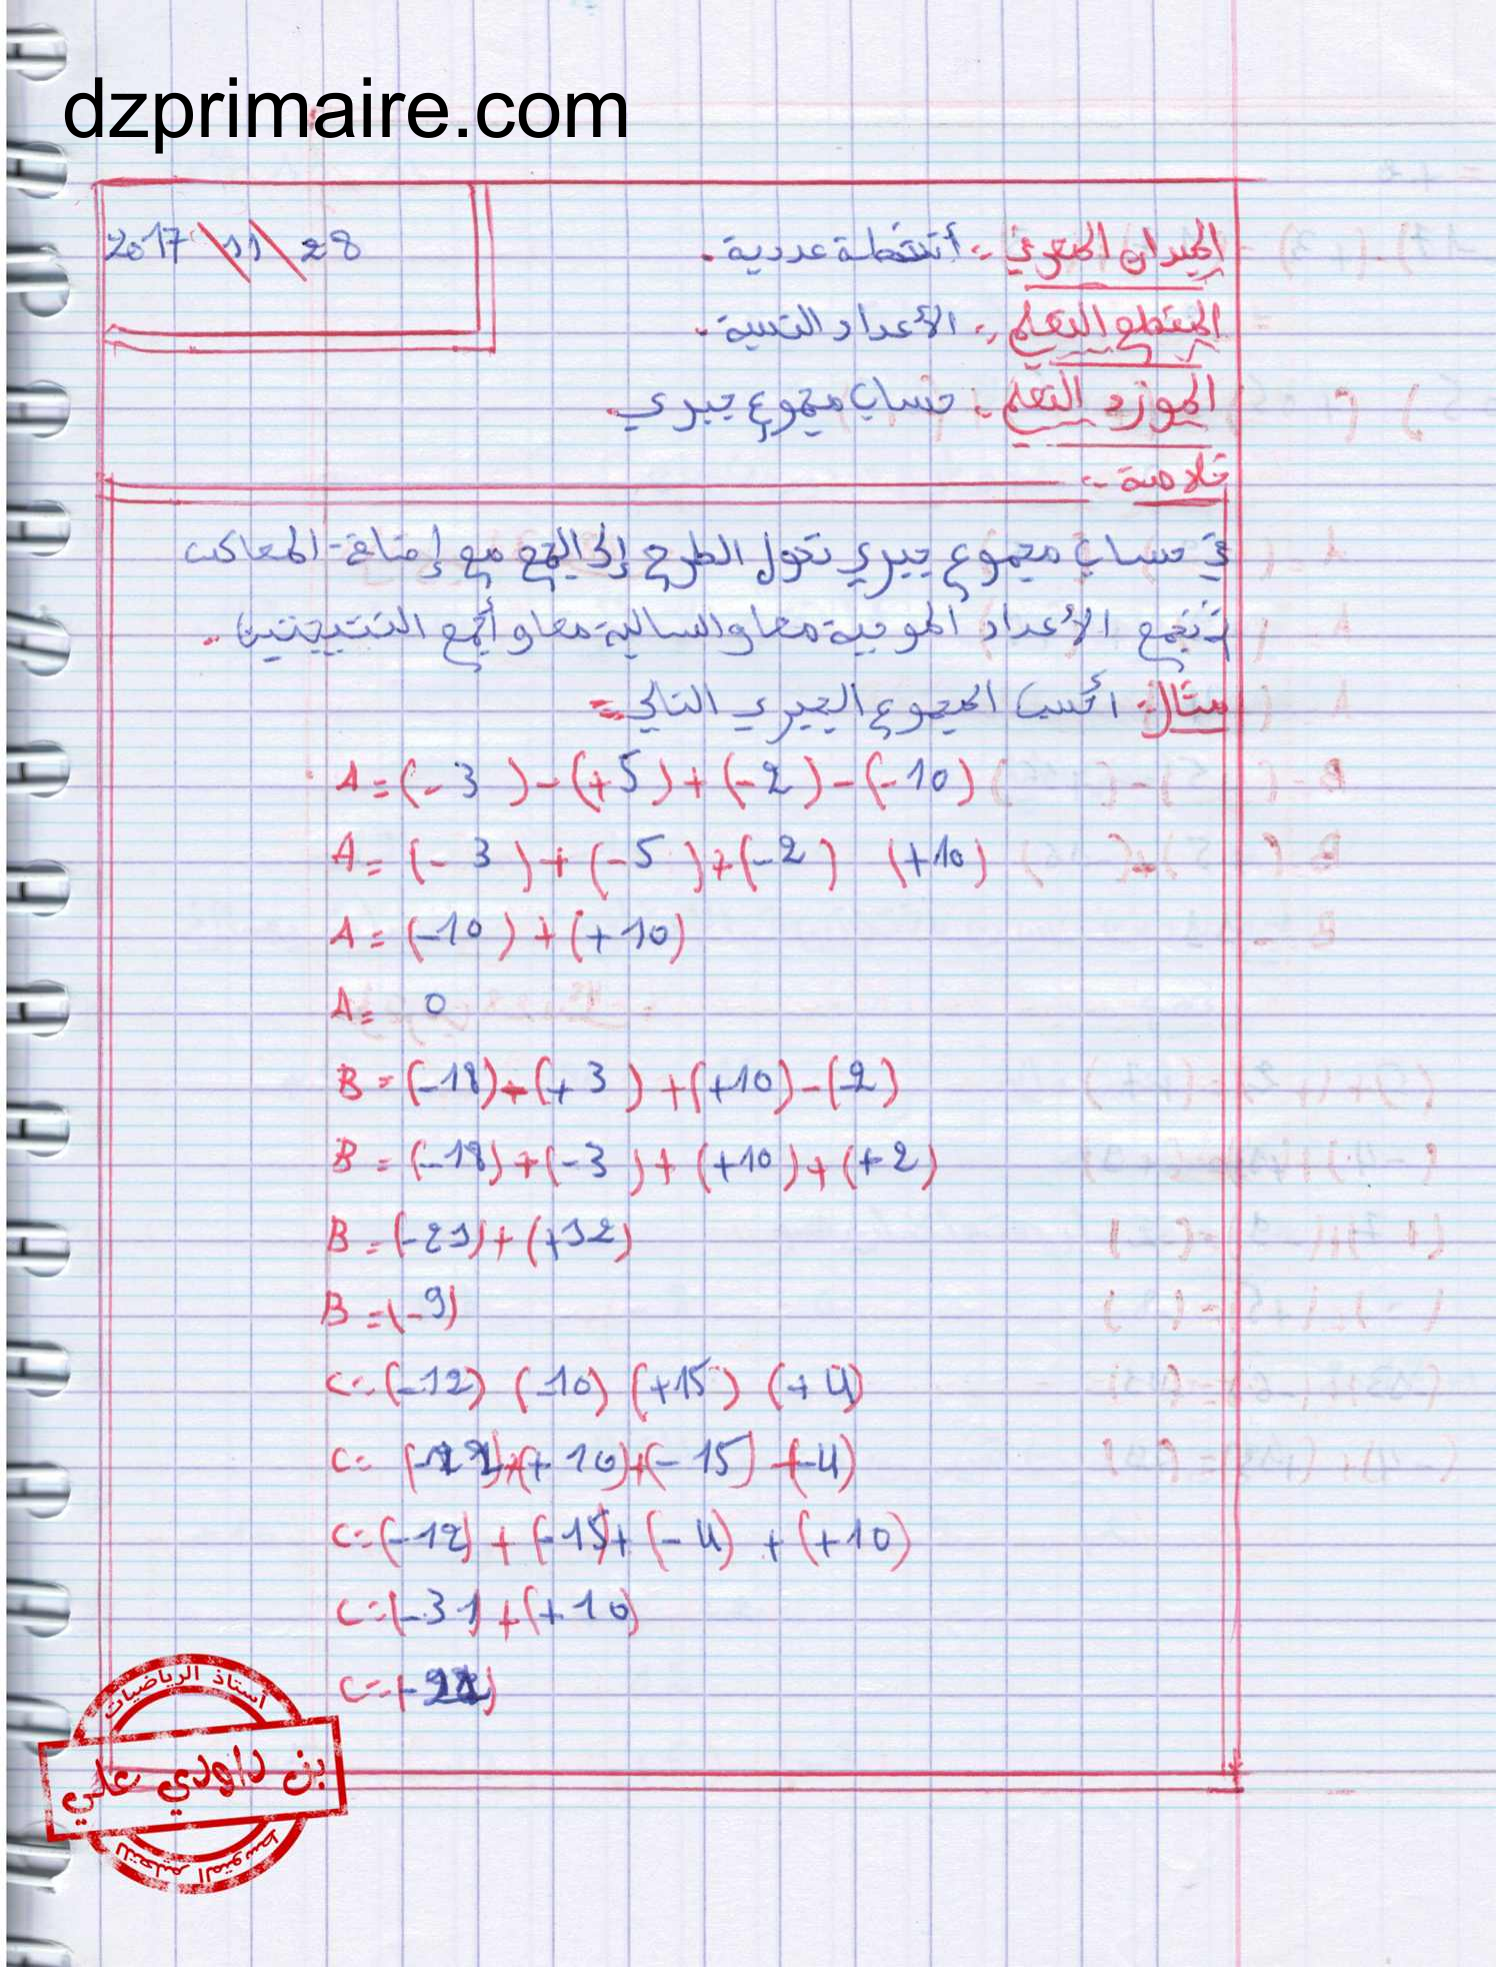 dzprimaire.com
2017 \ 11 \ 28
الميدان المعرفي :- أنشطة عددية.
المقطع التعلمي :- الأعداد النسبية.
المورد التعلمي :- حساب مجموع جبري.
خلاصة :-
في حساب مجموع جبري نحول الطرح إلى الجمع مع إضافة المعاكس
ثم نجمع الأعداد الموجبة معا والسالبة معا و أجمع النتيجتين.
مثال:- أحسب المجموع الجبري التالي :-
A = (- 3 ) - (+5) + (-2) - (-10)
A = (- 3 ) + (-5 ) + (-2 ) (+10)
A = (-10 ) + (+10)
A = 0
B = (-18) - (+ 3 ) + (+10) - (-2)
B = (-18) + (-3 ) + (+10) + (+2)
B = (-21) + (+12)
B = (-9)
C = (-12) (-10) (+15) (+4)
C = (-12) + (+10) + (-15) + (-4)
C = (-12) + (-15) + (-4) + (+10)
C = (-31) + (+10)
C = (-21)
أستاذ الرياضيات
بن داودي علي
للتعليم المتوسط